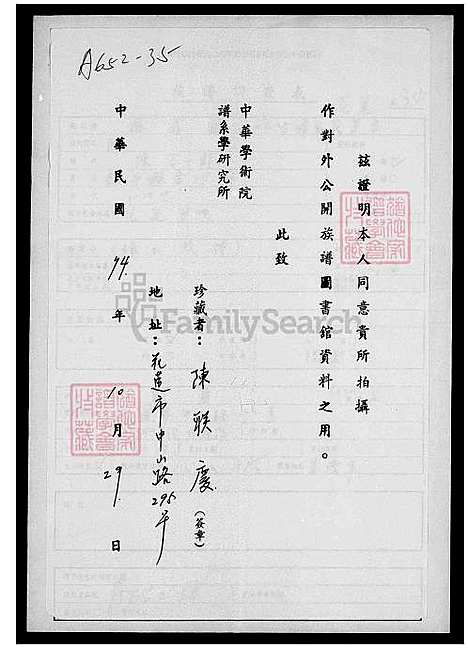 A652-35
茲證明本人同意貴所拍攝
作對外公開族譜圖書館資料之用。
此致
中華學術院
譜系學研究所
珍藏者：陳联慶（簽章）
地址：花蓮市中山路295号
中華民國74年10月29日
FamilySearch